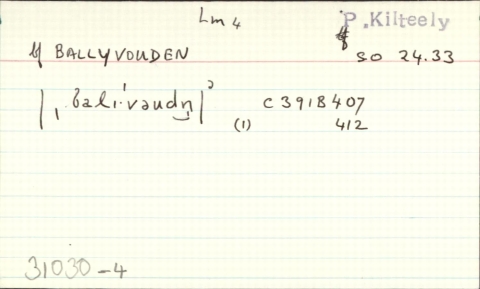 Lm 4
P. Kilteely
BALLYVOUDEN
SO 24.33
|ˌbali'vaudn̩|²
C 391B407
(1) 412
31030-4